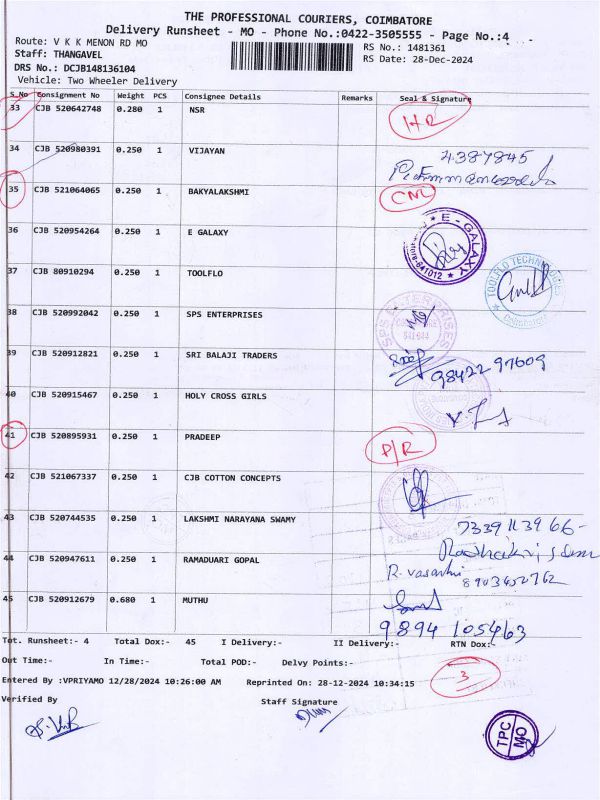 THE PROFESSIONAL COURIERS, COIMBATORE
Delivery Runsheet - MO - Phone No.:0422-3505555 - Page No.:4
Route: V K K MENON RD MO
RS No.: 1481361
Staff: THANGAVEL
RS Date: 28-Dec-2024
DRS No.: DCJB148136104
Vehicle: Two Wheeler Delivery
S_No Consignment No Weight PCS Consignee Details Remarks Seal & Signature
33 CJB 520642748 0.280 1 NSR HR
34 CJB 520980391 0.250 1 VIJAYAN 4387845
35 CJB 521064065 0.250 1 BAKYALAKSHMI CNL
36 CJB 520954264 0.250 1 E GALAXY E - GALAXY 641012
37 CJB 80910294 0.250 1 TOOLFLO TOOLFLO TECHNOLOGIES
38 CJB 520992042 0.250 1 SPS ENTERPRISES SPS ENTERPRISES
39 CJB 520912821 0.250 1 SRI BALAJI TRADERS 98422 97609
40 CJB 520915467 0.250 1 HOLY CROSS GIRLS
41 CJB 520895931 0.250 1 PRADEEP P/R
42 CJB 521067337 0.250 1 CJB COTTON CONCEPTS
43 CJB 520744535 0.250 1 LAKSHMI NARAYANA SWAMY 7339113966-
44 CJB 520947611 0.250 1 RAMADUARI GOPAL R. Vasanthi
8903452762
45 CJB 520912679 0.680 1 MUTHU
9894 105463
Tot. Runsheet:- 4 Total Dox:- 45 I Delivery:- II Delivery:- RTN Dox:-
Out Time:- In Time:- Total POD:- Delvy Points:-
3
Entered By :VPRIYAMO 12/28/2024 10:26:00 AM Reprinted On: 28-12-2024 10:34:15
Verified By
Staff Signature
TPC
MO